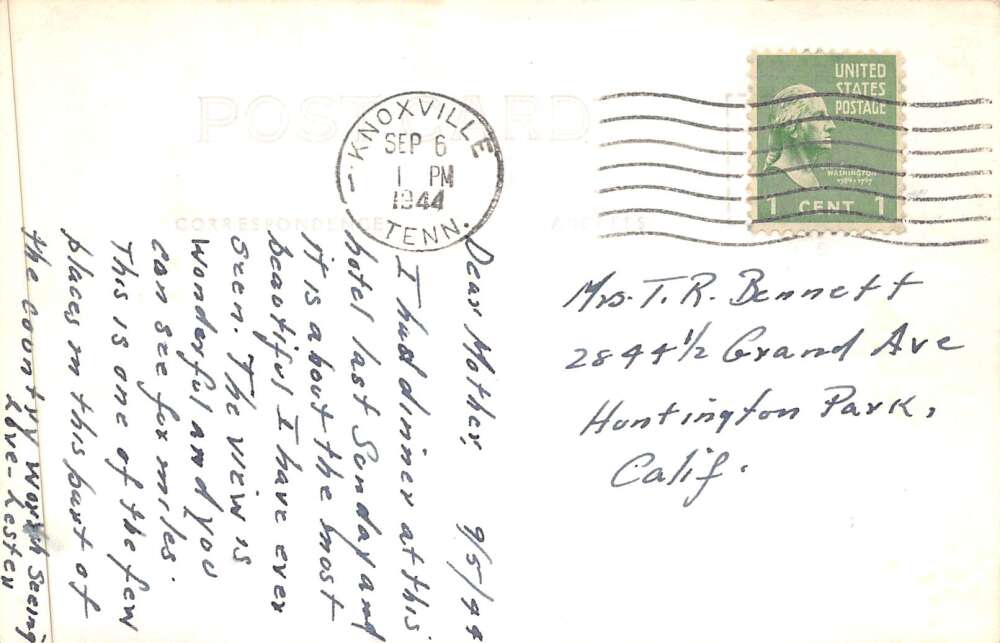 POST CARD
CORRESPONDENCE
ADDRESS
KNOXVILLE
SEP 6
1 PM
1944
TENN.
UNITED
STATES
POSTAGE
WASHINGTON
1789-1797
1 CENT 1
Dear Mother, 9/5/44
I had dinner at this
hotel last Sunday and
it is about the most
beautiful I have ever
seen. The view is
wonderful and you
can see for miles.
This is one of the few
places in this part of
the country worth seeing
Love-Lester
Mrs. T. R. Bennett
2844 1/2 Grand Ave
Huntington Park,
Calif.